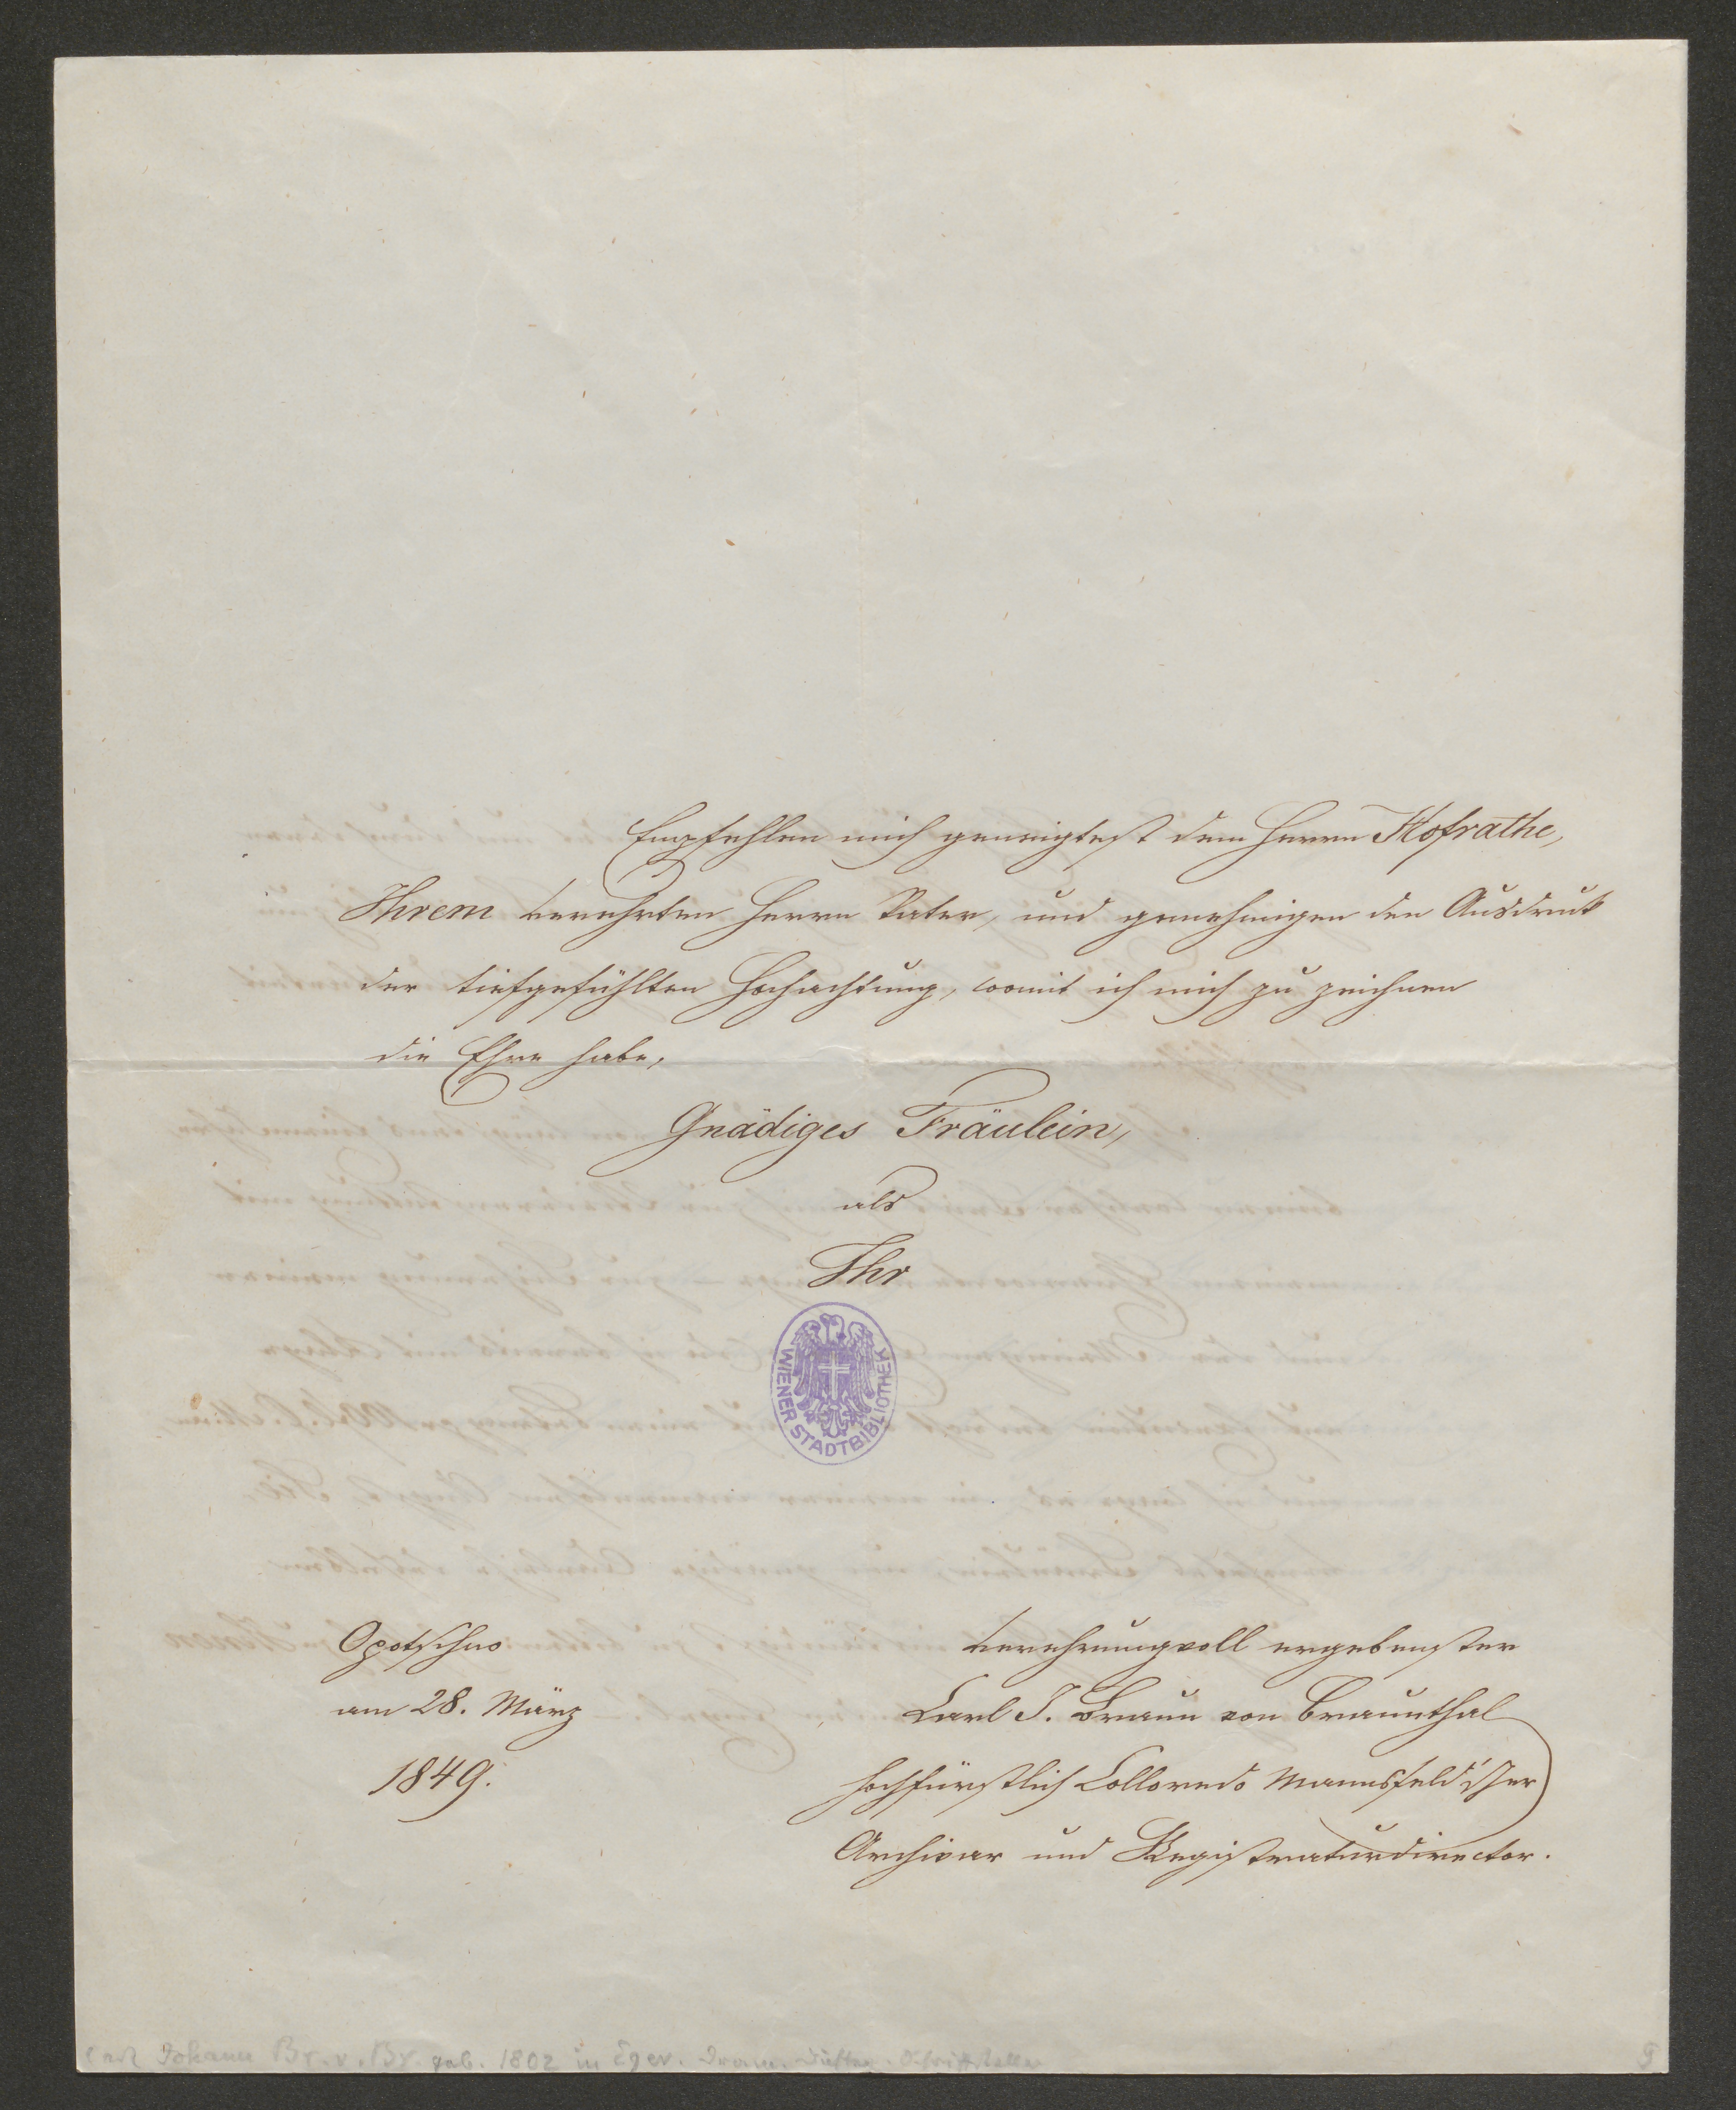 Empfehlen mich geneigtest dem Herrn Hofrathe,
Ihrem verehrten Herrn Vater, und genehmigen den Ausdruk
der tiefgefühlten Hochachtung, womit ich mich zu zeichnen
die Ehre habe,
Gnädiges Fräulein,
als
Ihr
WIENER STADTBIBLIOTHEK
Opotschno
am 28. März
1849.
verehrungvoll ergebenster
Carl J. Braun von Braunthal
hochfürstlich Colloredo Mannsfeld'scher
Archivar und Registraturdirector.
Carl Johann Br. v. Br. geb. 1802 in Eger. Dram. Schriftsteller